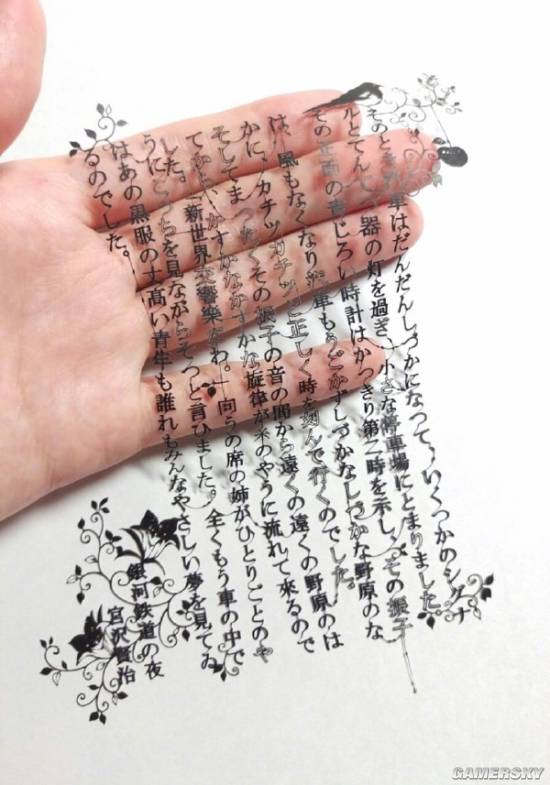 そのとき汽車はだんだんしづかになつて、いくつかのシグナ
ルとてんてつ器の灯を過ぎ、小さな停車場にとまりました。
その正面の青じろい時計はかつきり第二時を示し、その振子
は、風もなくなり汽車もうごかずしづかなしづかな野原のな
かに、カチツカチツと正しく時を刻んで行くのでした。
そしてまつたくその振子の音の間から遠くの遠くの野原のは
てから、かすかなかすかな旋律が糸のやうに流れて來るので
した。「新世界交響樂だわ。」向うの席の姉がひとりごとのや
うにこつちを見ながらそつと言ひました。全くもう車の中で
はあの黒服の丈高い青年も誰れもみんなやさしい夢を見てゐ
るのでした。
銀河鉄道の夜
宮沢賢治
GAMERSKY